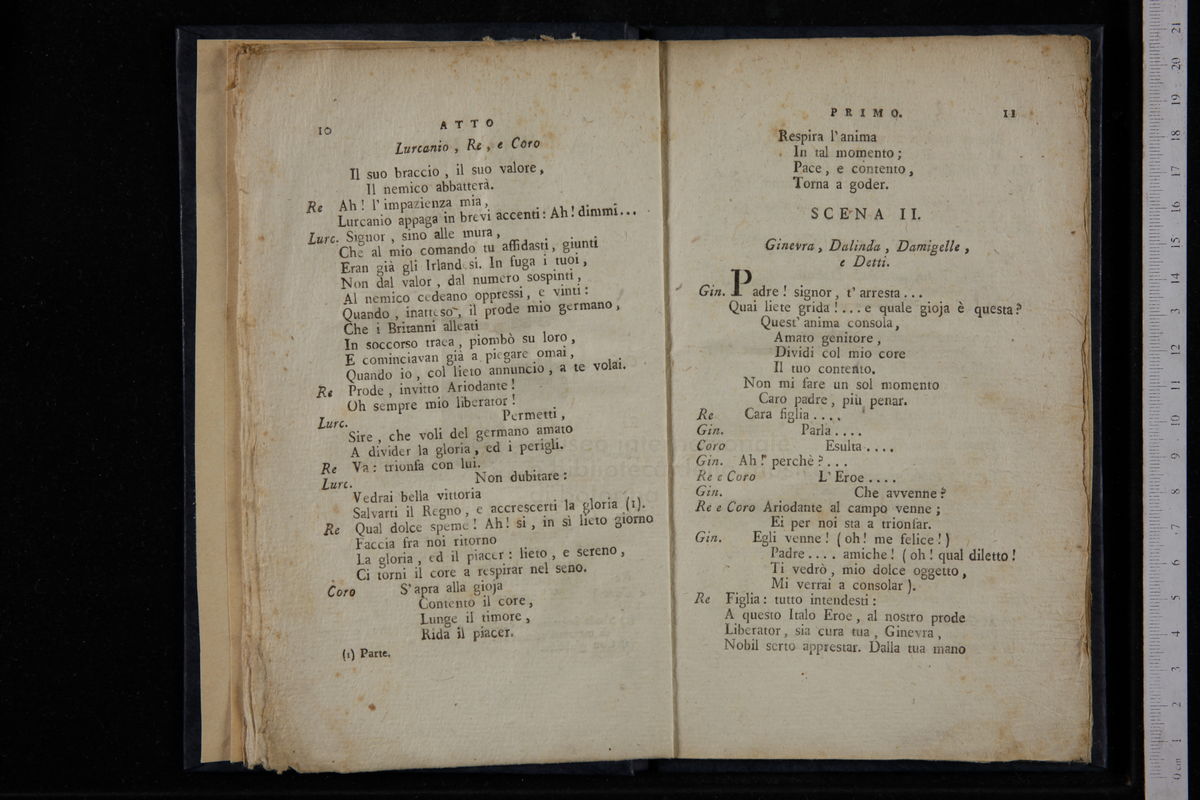 10
ATTO
Lurcanio, Re, e Coro
Il suo braccio, il suo valore,
Il nemico abbatterà.
Re Ah! l'impazienza mia,
Lurcanio appaga in brevi accenti: Ah! dimmi...
Lurc. Signor, sino alle mura,
Che al mio comando tu affidasti, giunti
Eran già gli Irlandesi. In fuga i tuoi,
Non dal valor, dal numero sospinti,
Al nemico cedeano oppressi, e vinti:
Quando, inatteso, il prode mio germano,
Che i Britanni alleati
In soccorso traea, piombò su loro,
E cominciavan già a piegare omai,
Quando io, col lieto annuncio, a te volai.
Re Prode, invitto Ariodante!
Oh sempre mio liberator!
Lurc. Permetti,
Sire, che voli del germano amato
A divider la gloria, ed i perigli.
Re Va: trionfa con lui.
Lurc. Non dubitare:
Vedrai bella vittoria
Salvarti il Regno, e accrescerti la gloria (1).
Re Qual dolce speme! Ah! si, in sì lieto giorno
Faccia fra noi ritorno
La gloria, ed il piacer: lieto, e sereno,
Ci torni il core a respirar nel seno.
Coro S'apra alla gioja
Contento il core,
Lunge il timore,
Rida il piacer.
(1) Parte.
PRIMO.
11
Respira l'anima
In tal momento;
Pace, e contento,
Torna a goder.
SCENA II.
Ginevra, Dalinda, Damigelle,
e Detti.
Gin. Padre! signor, t'arresta...
Quai liete grida!...e quale gioja è questa?
Quest'anima consola,
Amato genitore,
Dividi col mio core
Il tuo contento.
Non mi fare un sol momento
Caro padre, più penar.
Re Cara figlia....
Gin. Parla....
Coro Esulta....
Gin. Ah! perchè?...
Re e Coro L'Eroe....
Gin. Che avvenne?
Re e Coro Ariodante al campo venne;
Ei per noi sta a trionfar.
Gin. Egli venne! (oh! me felice!)
Padre.... amiche! (oh! qual diletto!
Ti vedrò, mio dolce oggetto,
Mi verrai a consolar).
Re Figlia: tutto intendesti:
A questo Italo Eroe, al nostro prode
Liberator, sia cura tua, Ginevra,
Nobil serto apprestar. Dalla tua mano